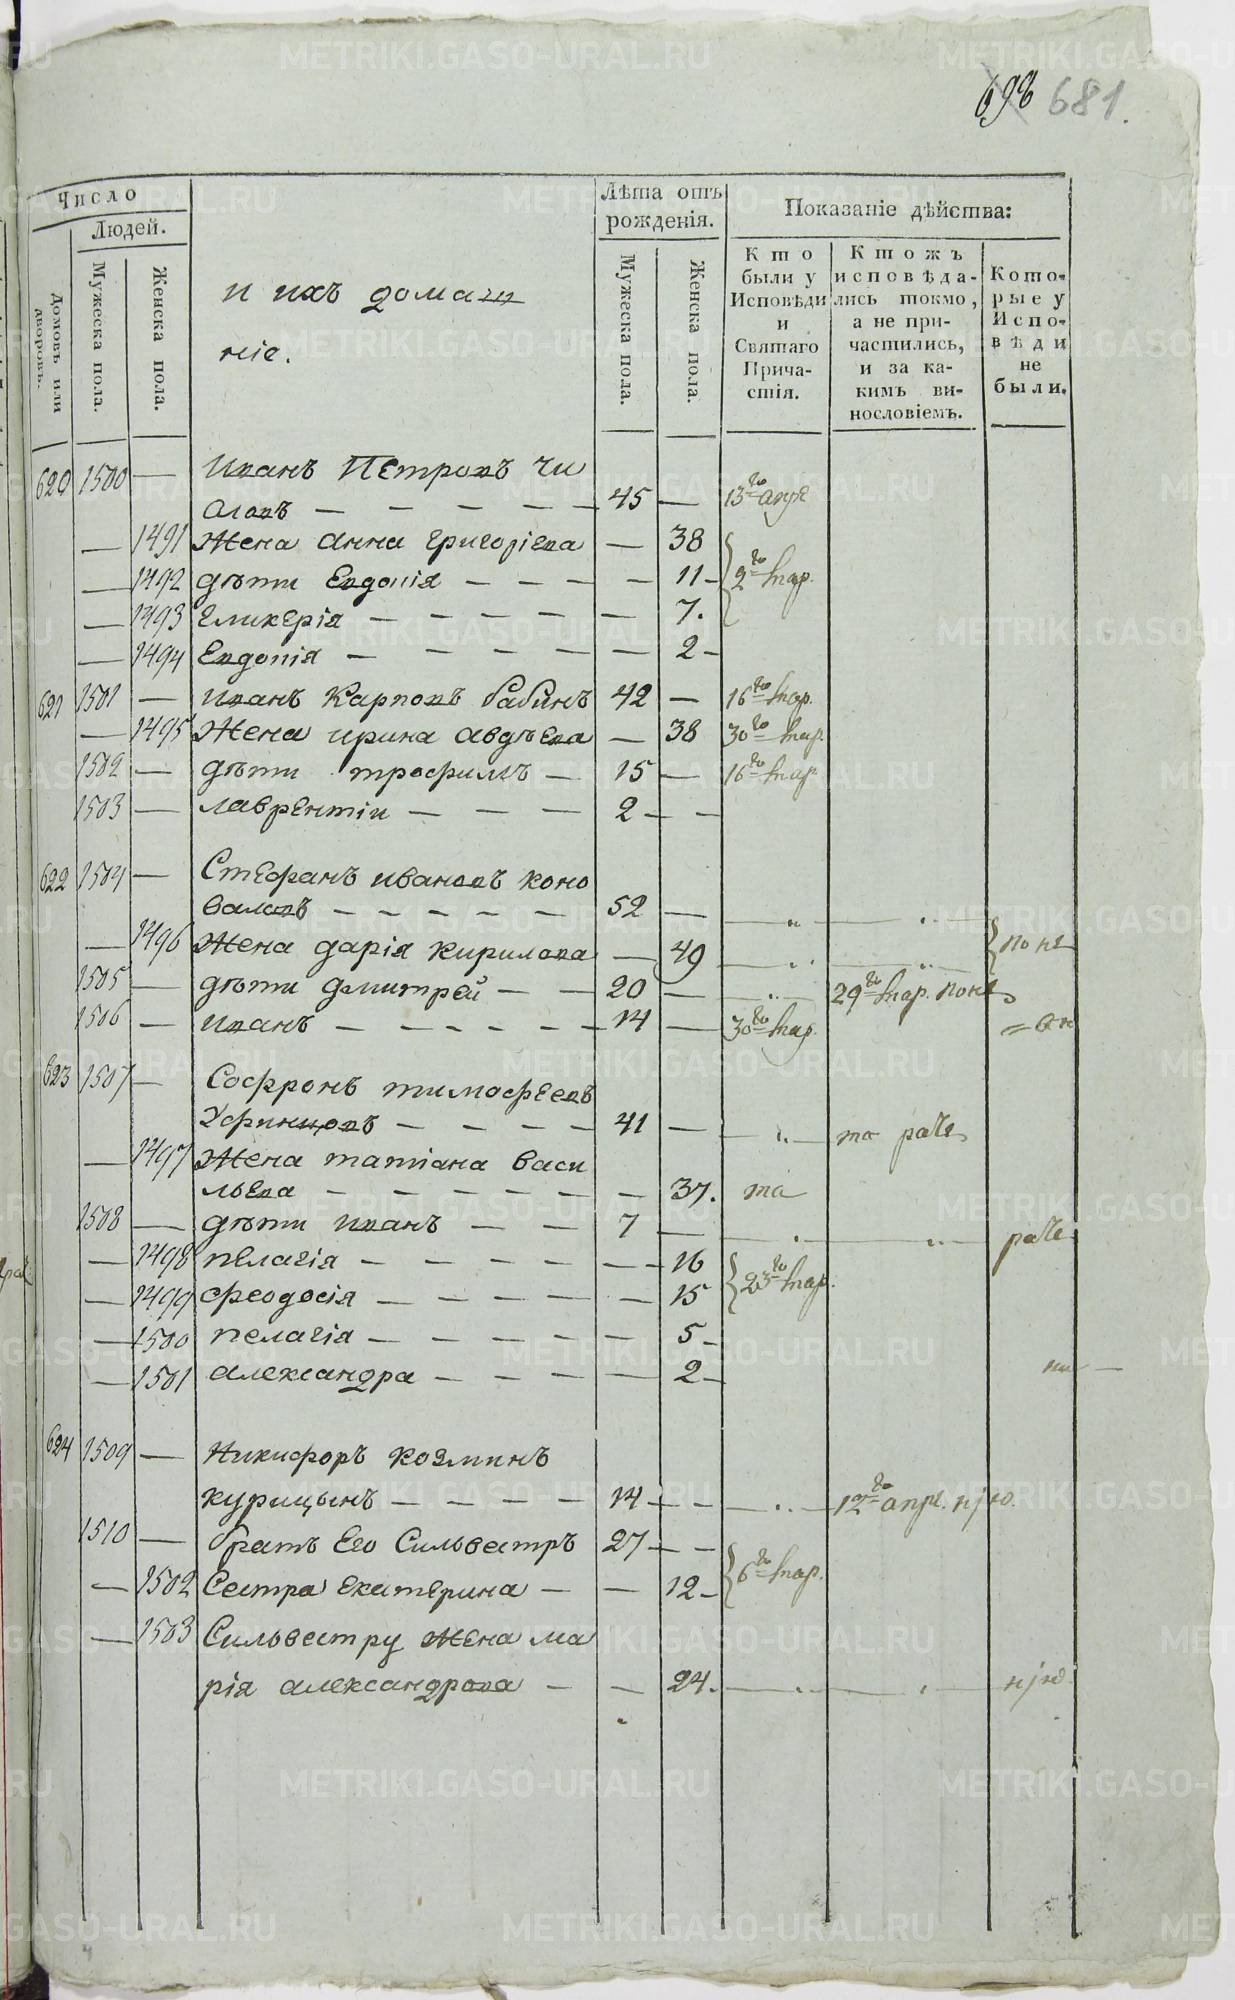 698 681.
Число
Людей.
Домовъ или дворовъ.
Мужеска пола.
Женска пола.
и ихъ домаш
ніе.
Лѣта отъ
рожденія.
Мужеска пола.
Женска пола.
Показаніе дѣйства:
Кто
были у
Исповѣди
и
Святаго
Прича-
стія.
Ктожъ
исповѣда-
лись токмо,
а не при-
частились,
и за ка-
кимъ ви-
нословіемъ.
Кото-
рые у
Испо-
вѣди
не
были.
620 1500 — Иванъ Петровъ Чи
аловъ — — — — — 45 — 13го апре
— 1491 Жена Анна Григоріева — 38
— 1492 дѣти Евдокія — — — — 11 2го мар.
— 1493 Гликерія — — — — — 7.
— 1494 Евдокія — — — — — 2
621 1501 — Иванъ Карповъ Бабинъ 42 — 16го мар.
— 1495 Жена Ирина Авдѣева — 38 30го мар.
1502 — дѣти Трофимъ — 15 — 16го мар.
1503 — Лаврентіи — — — 2 — —
622 1504 — Стефанъ Ивановъ Коно
валовъ — — — — — 52 —
— 1496 Жена Дарія Кирилова — 49
1505 — дѣти Дмитрей — — 20 — 29го мар.
1506 — Иванъ — — — — — 14 — 30го мар.
623 1507 — Софронъ Тимофеевъ
Уфинцовъ — — — — 41 —
— 1497 Жена Татіана Васи
льева — — — — — — 37.
1508 — дѣти Иванъ — — 7 —
— 1498 Пелагія — — — — — 16
— 1499 Феодосія — — — — — 15 23го мар.
— 1500 Пелагія — — — — — 5
— 1501 Александра — — — — 2
624 1509 — Никифоръ Козминъ
Курицынъ — — — — 14 — — 12го апре.
1510 — братъ Его Сильвестръ 27 — —
— 1502 Сестра Екатерина — — 12 6го мар.
— 1503 Сильвестру Жена Ма
рія Александрова — — 24.
METRIKI.GASO-URAL.RU